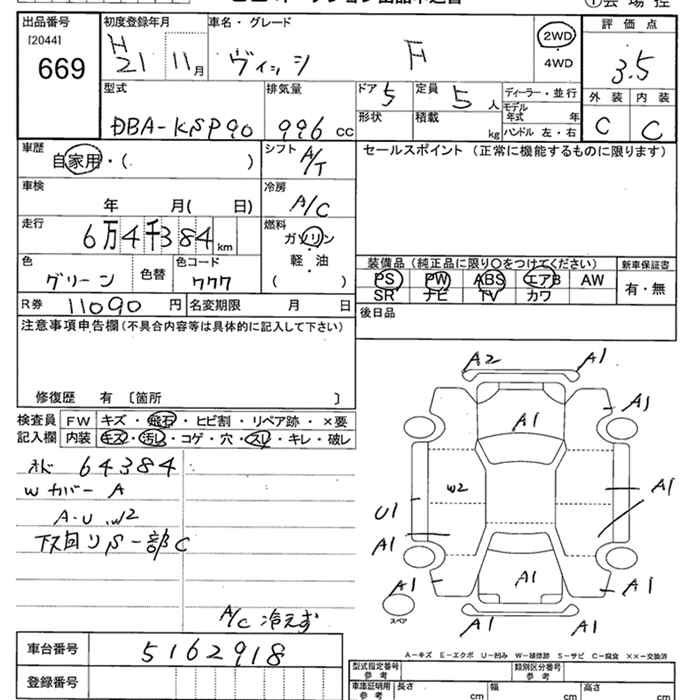 ①会場控
出品番号
[2044]
669
初度登録年月
H
21 11月
車名・グレード
ヴィッツ F
2WD
4WD
評価点
3.5
外装 内装
C C
型式
DBA-KSP90
排気量
996 CC
ドア 5
形状
定員 5 人
積載 kg
ディーラー・並行
モデル年式 年
ハンドル 左・右
車歴
自家用・( )
シフト A/T
セールスポイント (正常に機能するものに限ります)
車検
年 月( 日)
冷房 A/C
走行
6万4千384km
燃料
ガソリン
・
軽・油
( )
色 グリーン
色替
色コード 777
装備品(純正品に限り○をつけてください) 新車保証書
PS PW ABS エアB AW
SR ナビ TV カワ
有・無
R券 11090 円
名変期限 月 日
後日品
注意事項申告欄(不具合内容等は具体的に記入して下さい)
修復歴 有 〔箇所 〕
検査員 FW キズ・飛石・ヒビ割・リペア跡・×要
記入欄 内装 キズ・汚レ・コゲ・穴・スレ・キレ・破レ
64384
Wカバー A
A-U W2
下回りS一部C
A/C 冷えず
A2 A1
A1 A1
W2
U1 A1
A1
A1 A1 A1
A1 A1
スペア
A-キズ E-エクボ U-凹み W-補修跡 S-サビ C-腐食 ××-交換済
車台番号 5162918
登録番号
型式指定番号 参考
類別区分番号 参考
車庫証明用 参考
長さ cm
幅 cm
高さ cm